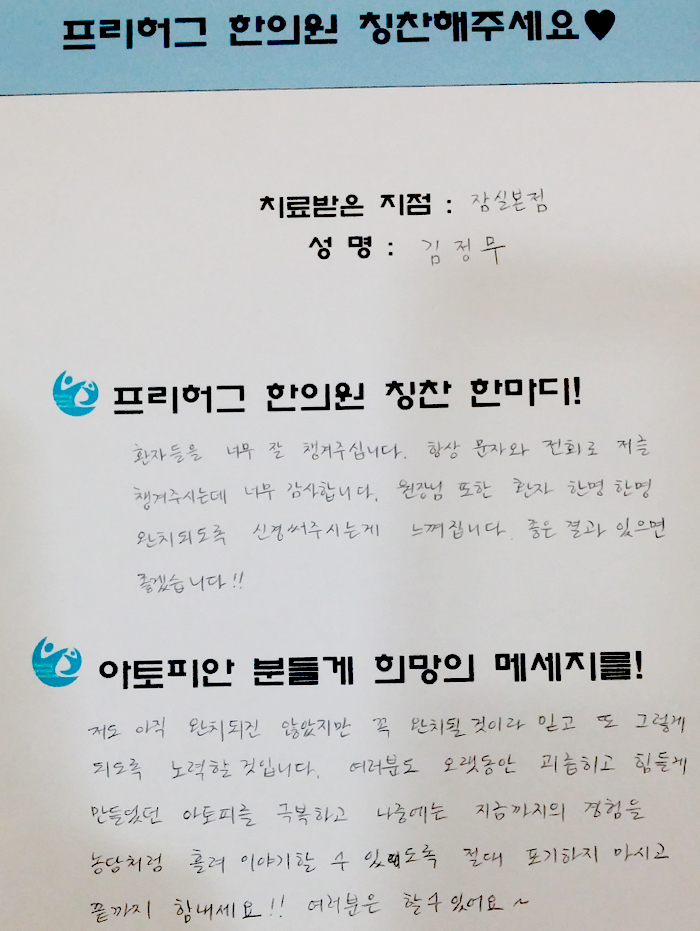 프리허그 한의원 칭찬해주세요♥
치료받은 지점 : 잠실본점
성 명 : 김정무
프리허그 한의원 칭찬 한마디!
환자들을 너무 잘 챙겨주십니다. 항상 문자와 전화로 저를
챙겨주시는데 너무 감사합니다. 원장님 또한 환자 한명 한명
완치되도록 신경써주시는게 느껴집니다. 좋은 결과 있으면
좋겠습니다!!
아토피안 분들게 희망의 메세지를!
저도 아직 완치되진 않았지만 꼭 완치될 것이라 믿고 또 그렇게
되도록 노력할 것입니다. 여러분도 오랫동안 괴롭히고 힘들게
만들었던 아토피를 극복하고 나중에는 지금까지의 경험을
농담처럼 흘려 이야기할 수 있도록 절대 포기하지 마시고
끝까지 힘내세요!! 여러분은 할수있어요~